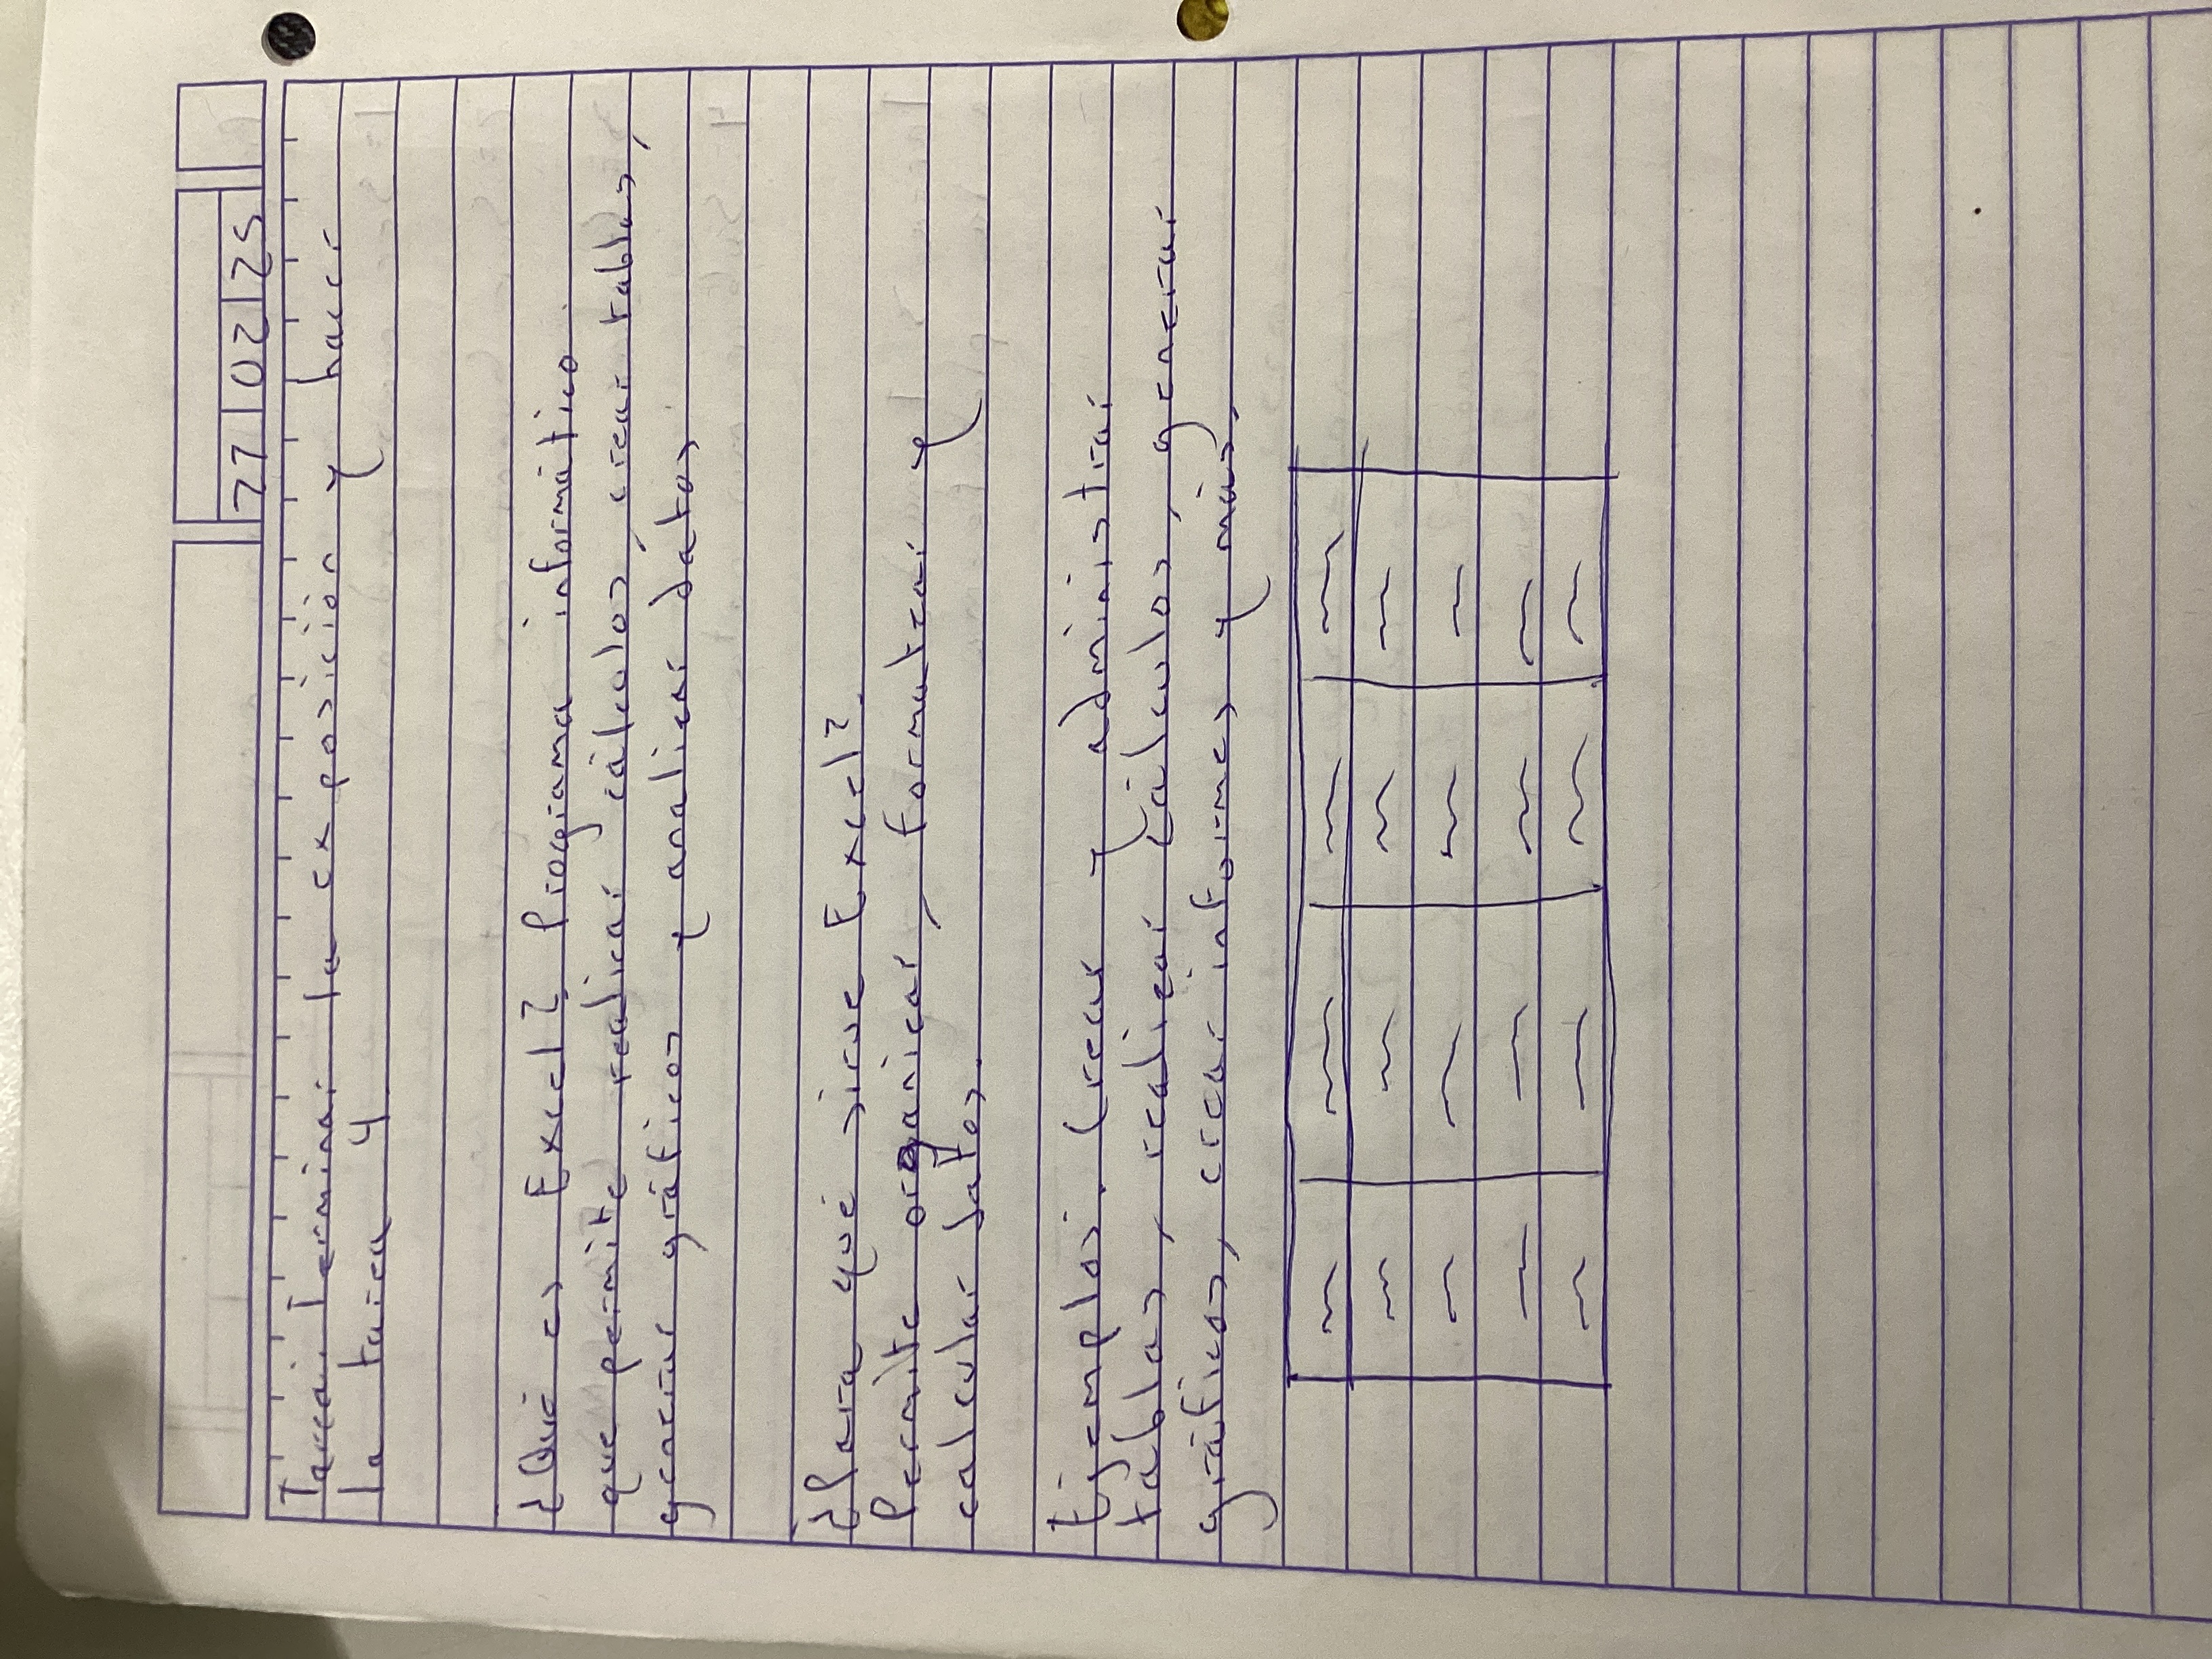 27/02/25
Tarea: Terminar la exposición y hacer
la tarea 4
¿Qué es Excel? Programa informático
que permite realizar cálculos, crear tablas,
generar gráficos y analizar datos
¿Para qué sirve Excel?
Permite organizar, formatear y
calcular datos.
Ejemplos. Crear y administrar
tablas, realizar cálculos, generar
gráficos, crear informes y más.